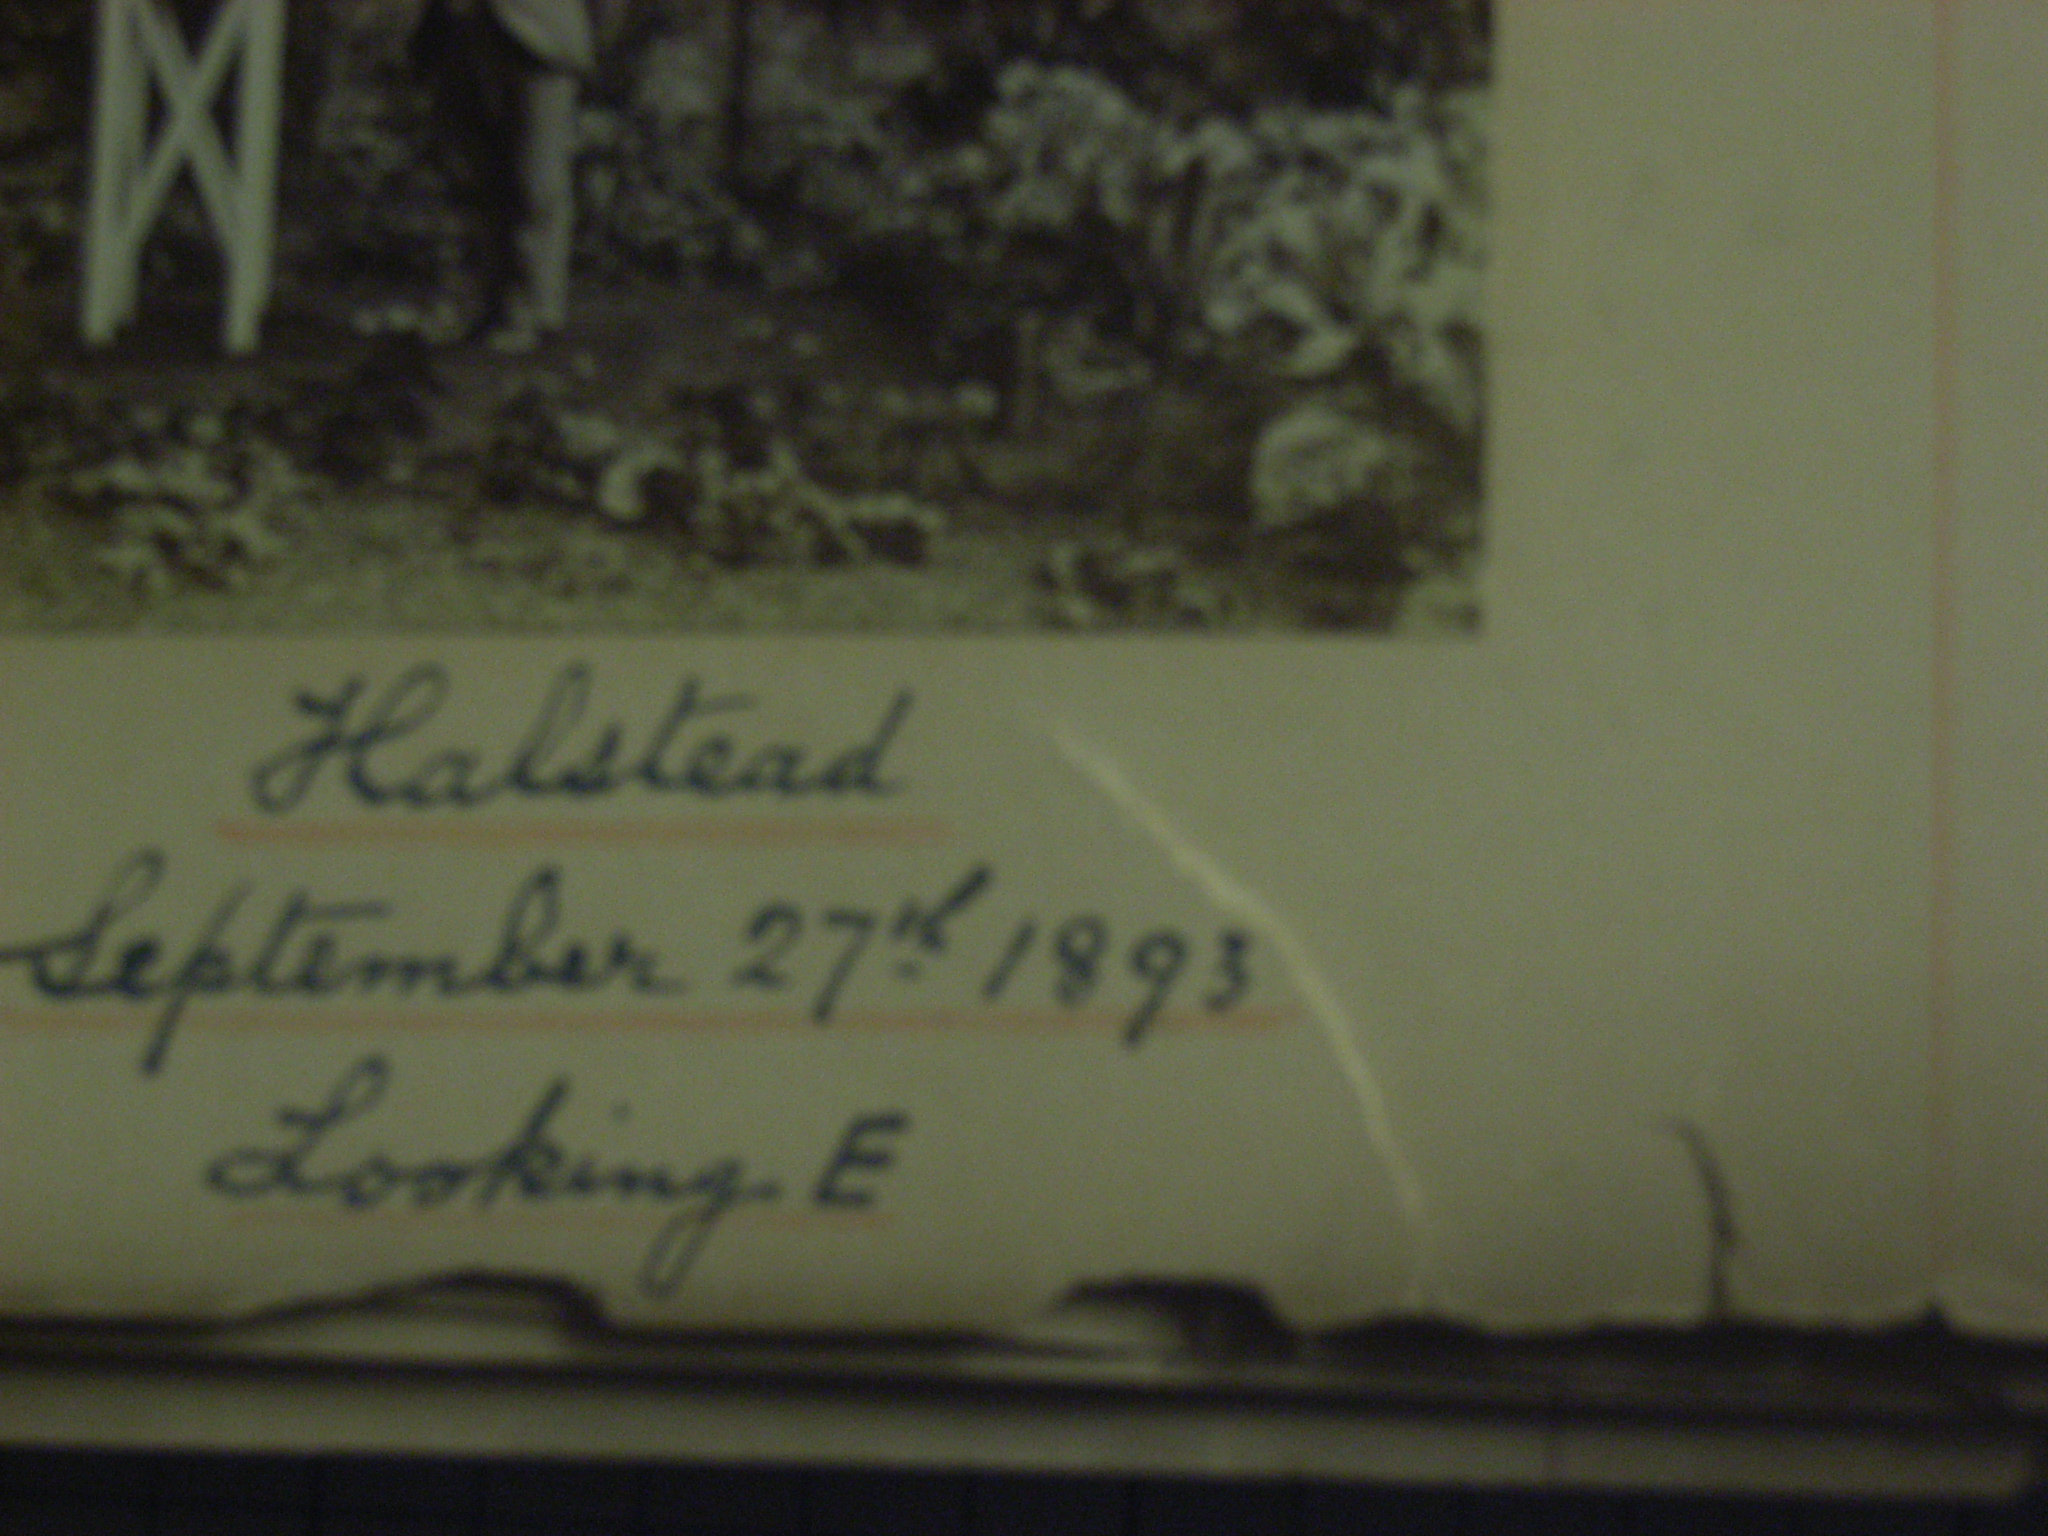 Halstead
September 27th 1893
Looking E